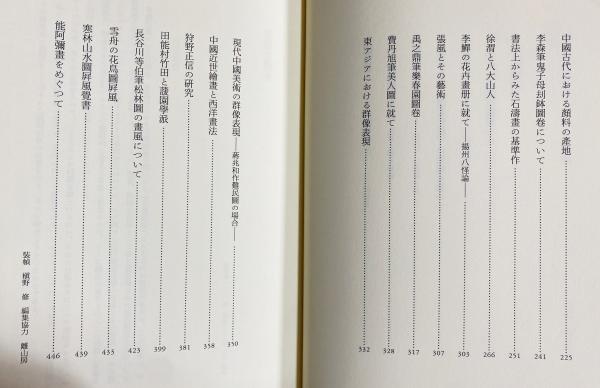 中國古代における顏料の產地 225
李森筆鬼子母刦鉢圖卷について 241
書法上からみた石濤畫の基準作 251
徐渭と八大山人 266
李鱓の花卉畫册に就て──揚州八怪論── 303
張風とその藝術 307
禹之鼎筆樂春園圖卷 317
費丹旭筆美人圖に就て 328
東アジアにおける群像表現 332
現代中國美術の群像表現──蔣兆和作難民圖の場合── 350
中國近世繪畫と西洋畫法 358
狩野正信の研究 381
田能村竹田と蘐園學派 399
長谷川等伯筆松林圖の畫風について 423
雪舟の花鳥圖屛風 435
寒林山水圖屛風覺書 439
能阿彌畫をめぐつて 446
裝幀 槇野 修 編集協力 離山房